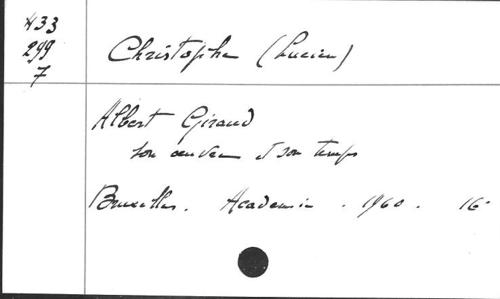 433
299
7
Christophe (Lucien)
Albert Giraud
son oeuvre et son temps
Bruxelles. Academie. 1960. 16°